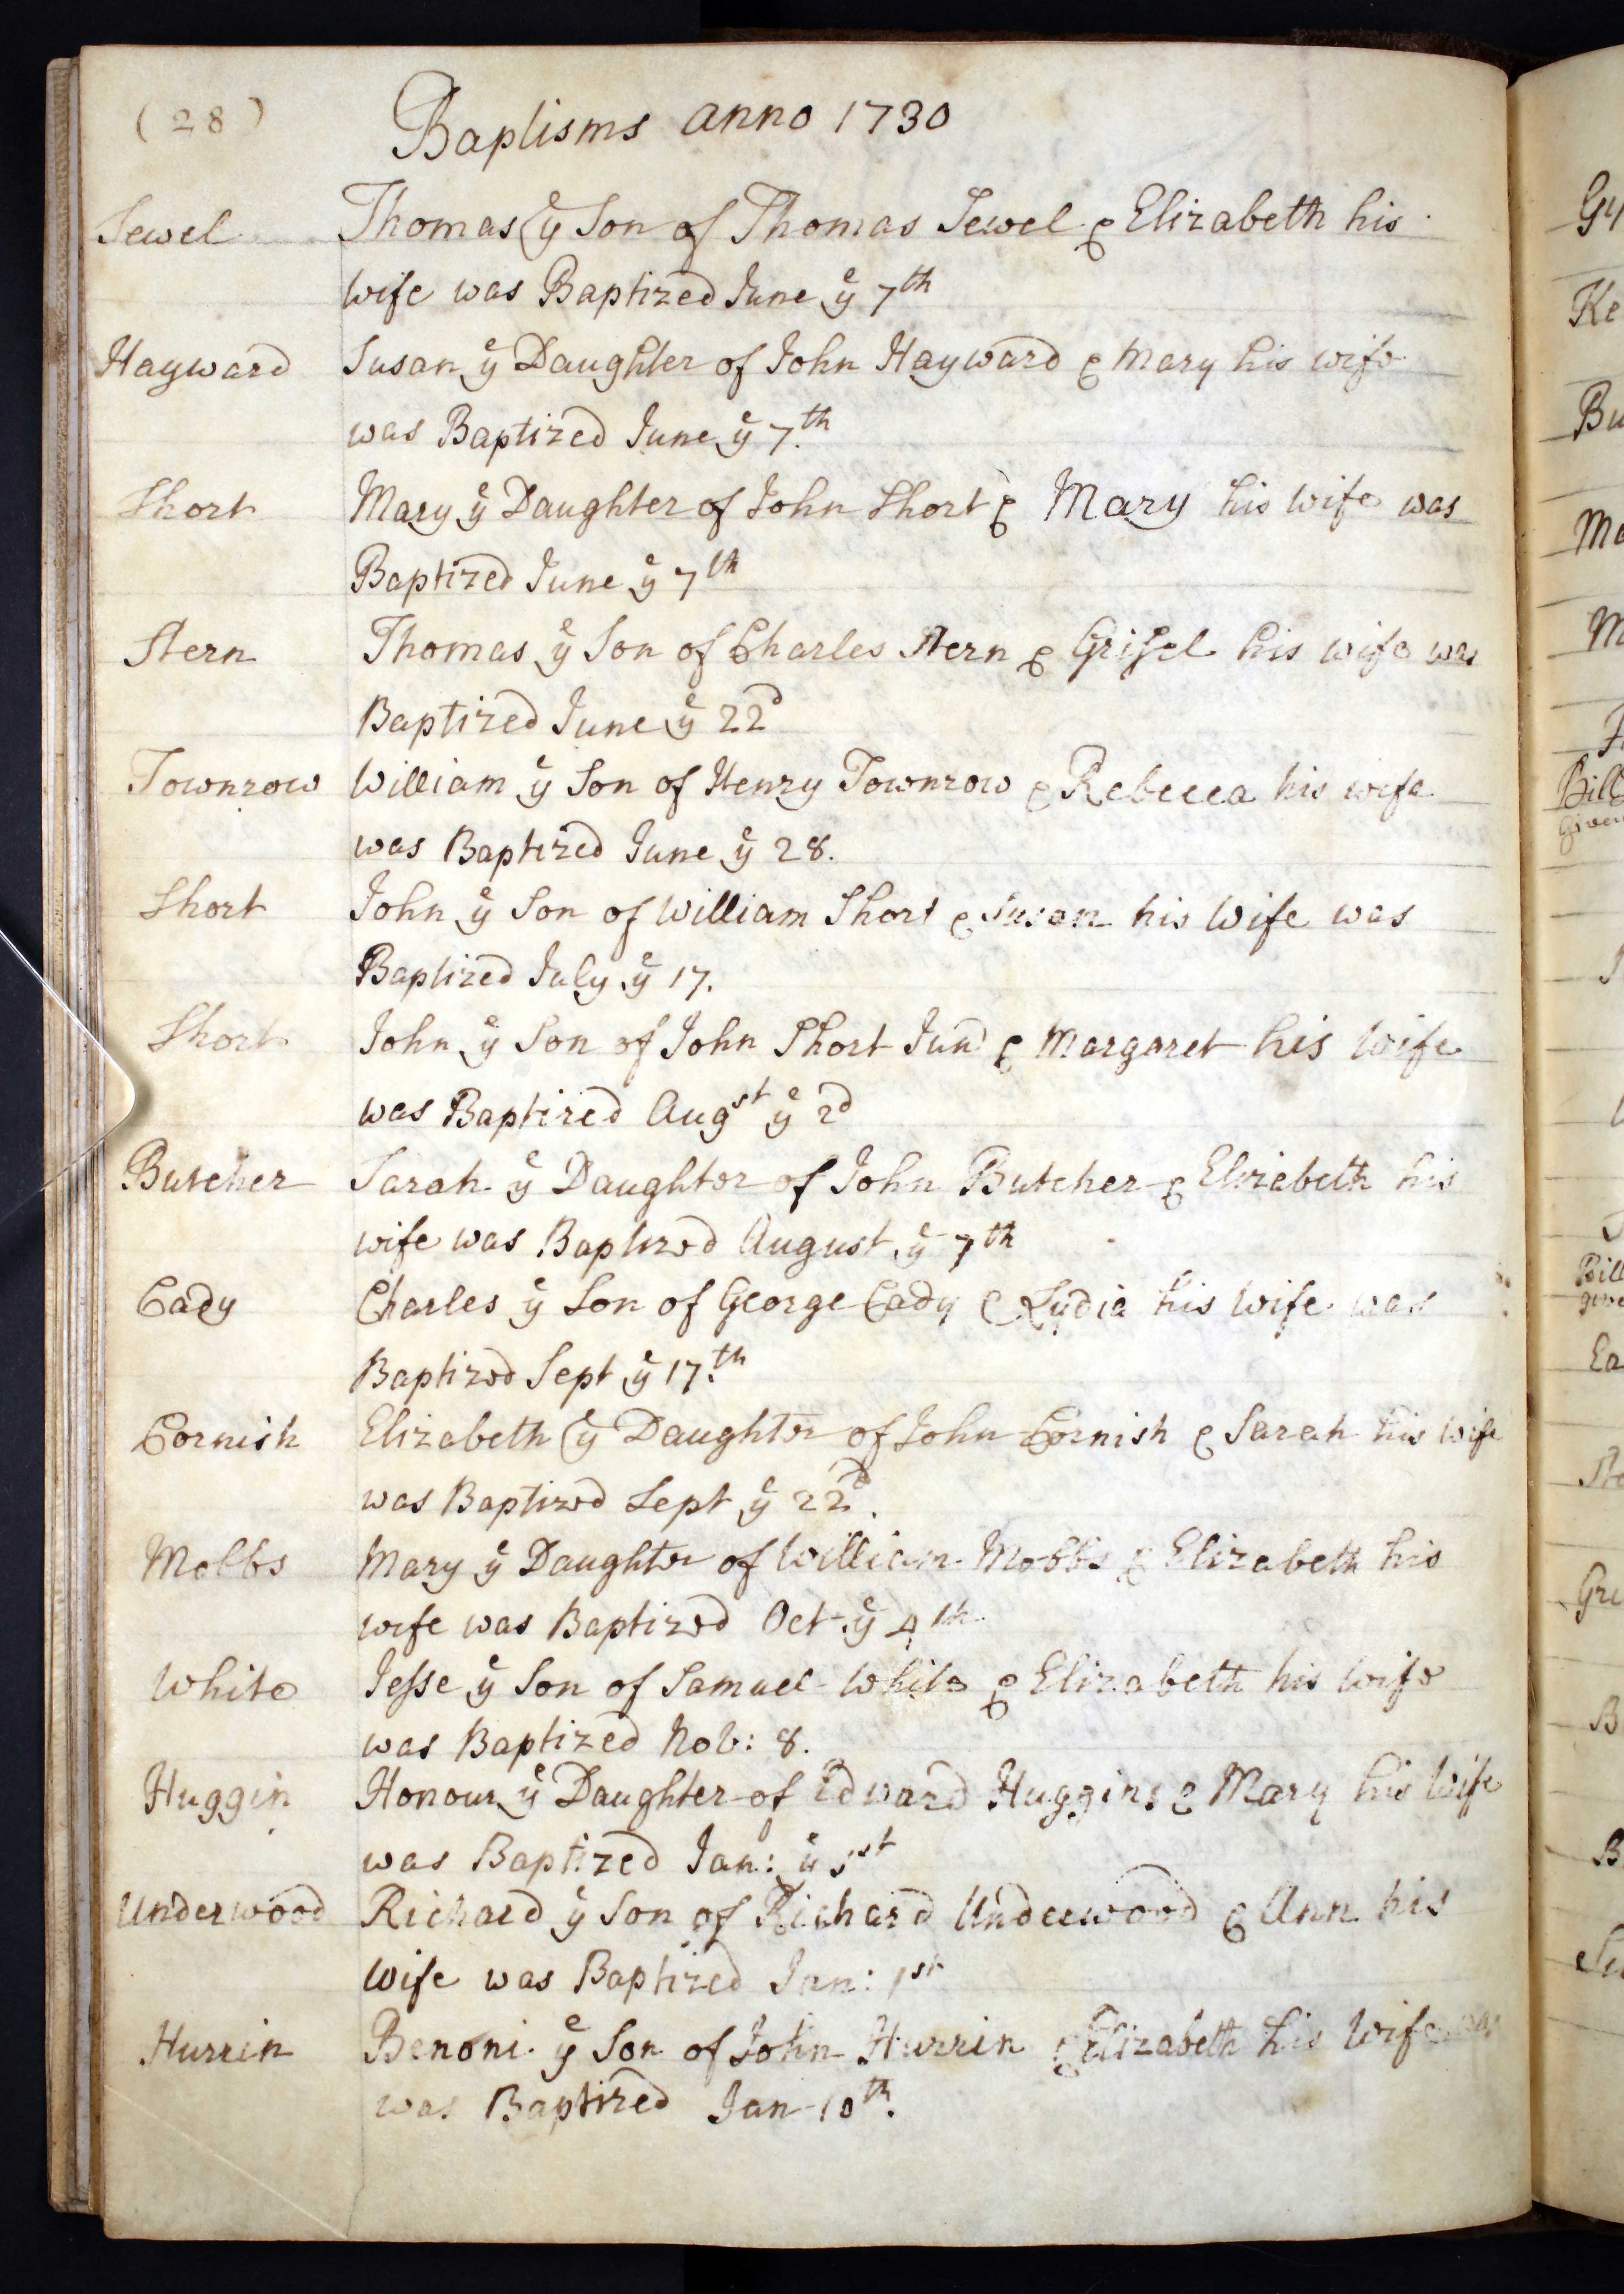 (28)
Baptisms anno 1730
Jewel Thomas yͤ Son of Thomas Jewel & Elizabeth his
wife was Baptized June yͤ 7th
Hayward Susan yͤ Daughter of John Hayward & Mary his wife
was Baptized June yͤ 7th
Short Mary yͤ Daughter of John Short & Mary his wife was
Baptized June yͤ 7th
Stern Thomas yͤ Son of Charles Stern & Grissel his wife was
Baptized June yͤ 22d
Townrow William yͤ Son of Henry Townrow & Rebecca his wife
was Baptized June yͤ 28.
Short John yͤ Son of William Short & Susan his wife was
Baptized July yͤ 17.
Short John yͤ Son of John Short Jun & Margaret his wife
was Baptized Augst yͤ 2d
Butcher Sarah yͤ Daughter of John Butcher & Elizabeth his
wife was Baptized August yͤ 7th
Cady Charles yͤ Son of George Cady & Lydia his wife was
Baptized Sept yͤ 17th
Cornish Elizabeth yͤ Daughter of John Cornish & Sarah his wife
was Baptized Sept yͤ 22d.
Mobbs Mary yͤ Daughter of William Mobbs & Elizabeth his
wife was Baptized Oct yͤ 4th
White Jesse yͤ Son of Samuel White & Elizabeth his wife
was Baptized Nob: 8.
Huggin Honour yͤ Daughter of Edward Huggins & Mary his wife
was Baptized Jan: yͤ 1st
Underwood Richard yͤ Son of Richard Underwood & Ann his
wife was Baptized Jan: 1st
Hurrin Benoni yͤ Son of John Hurrin & Elizabeth his wife was
was Baptized Jan 10th.
Ke
Bu
Ma
M
Bill
given
Bill
give
Ea
Gri
B
B